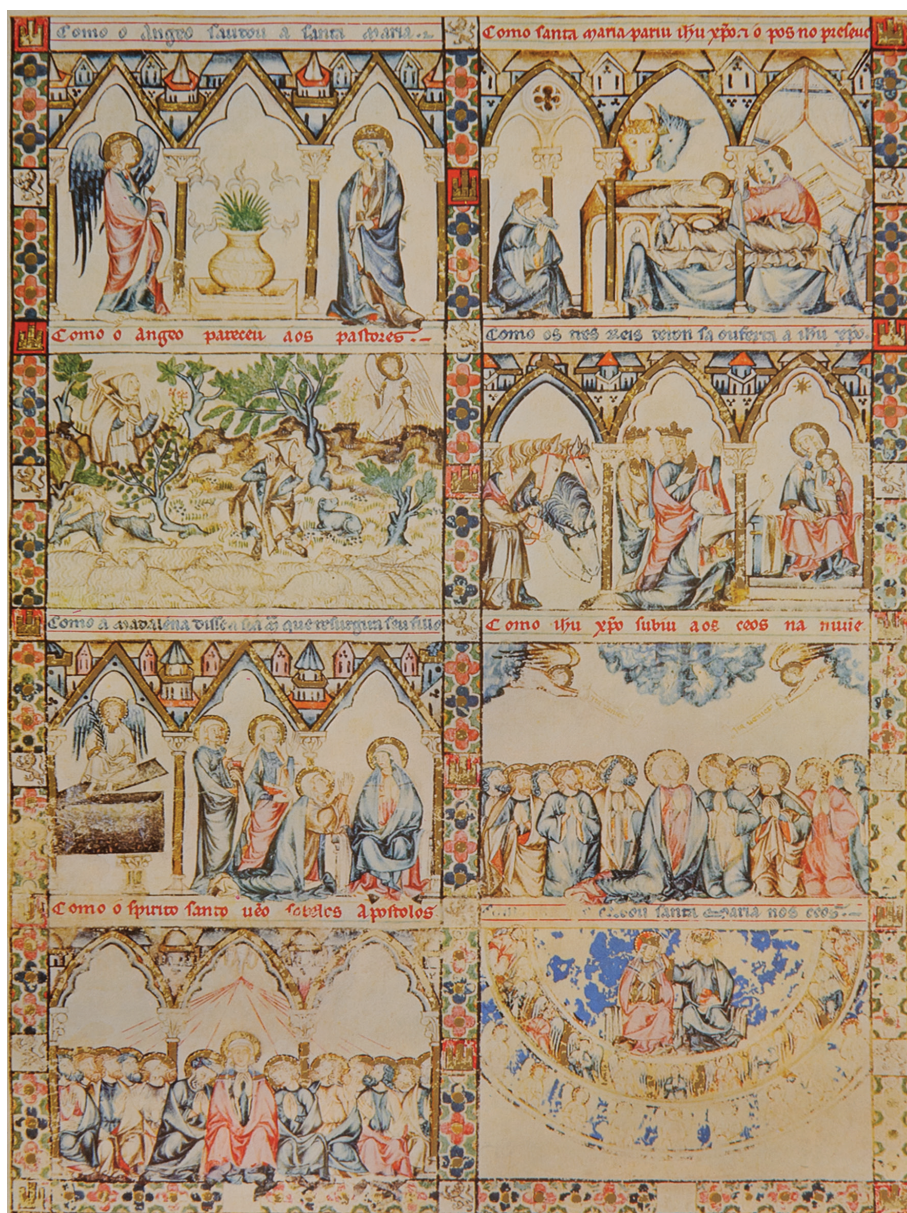 Como o Angeo saudou a santa Maria
Como santa Maria pariu ihu xpo. ⁊ o pos no preseue
Como o angeo pareceu aos pastores.
Como os tres Reis deron sa ouferta a ihu xpo.
Como a Madalena disse a sca m que resurgira seu fillo
Como ihu xpo subiu aos ceos na nuue
Como o spirito santo ueo sobelos Apostolos
santa Maria nos ceos.